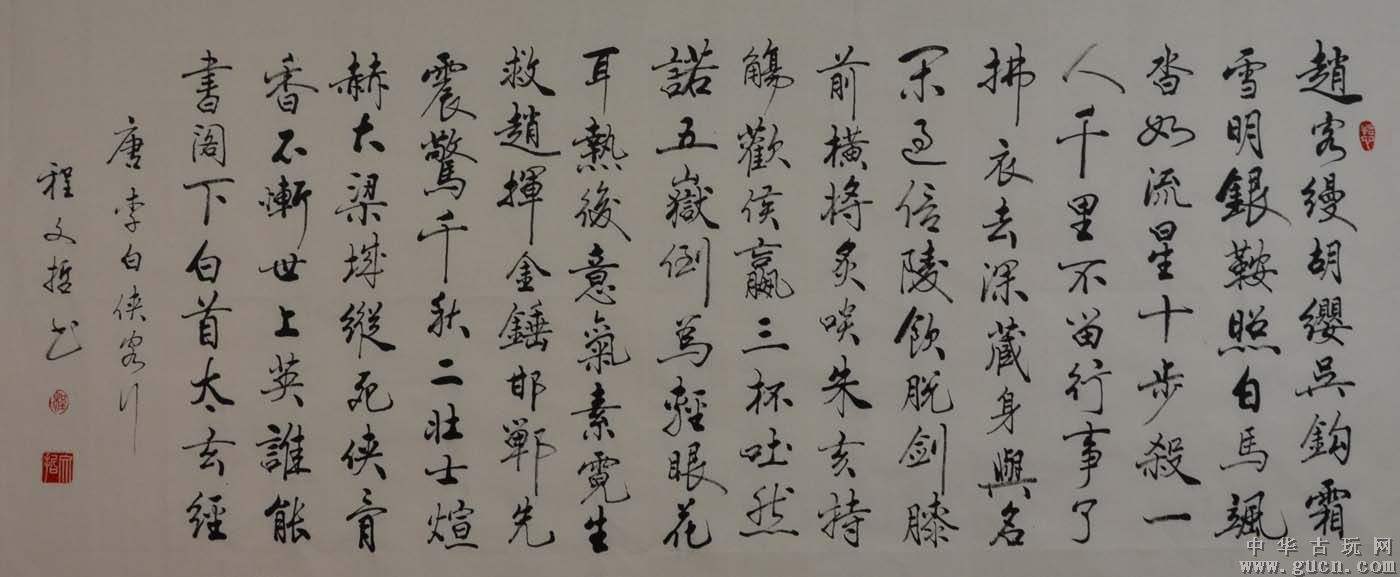 趙客縵胡纓吳鉤霜
雪明銀鞍照白馬颯
沓如流星十步殺一
人千里不留行事了
拂衣去深藏身與名
閑過信陵飲脫劍膝
前橫將炙啖朱亥持
觴歡侯嬴三杯吐然
諾五嶽倒為輕眼花
耳熱後意氣素霓生
救趙揮金錘邯鄲先
震驚千秋二壯士煊
赫大梁城縱死俠骨
香不慚世上英誰能
書閣下白首太玄經
唐李白俠客行
程文哲书
中华古玩网
www.gucn.com